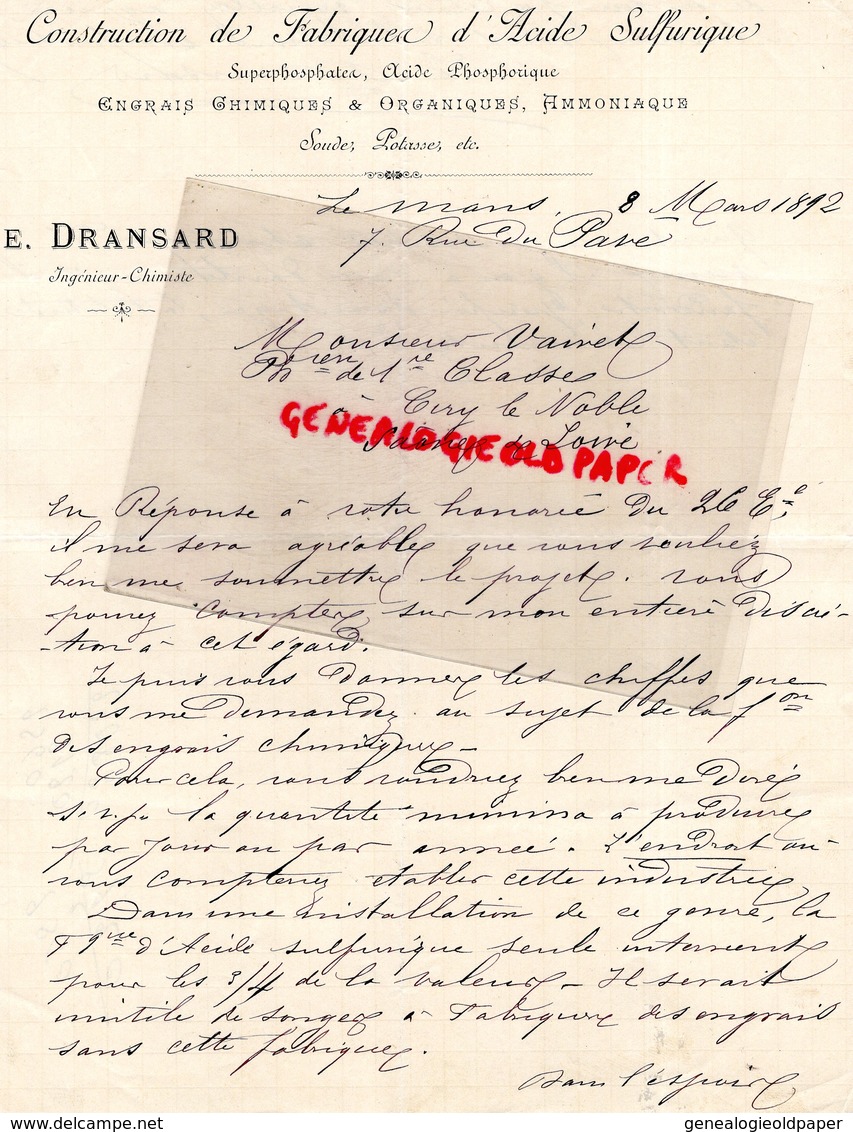 Construction de Fabriques d'Acide Sulfurique
Superphosphates, Acide Phosphorique
ENGRAIS CHIMIQUES & ORGANIQUES, AMMONIAQUE
Soude, Potasse, etc.
Le Mans, 8 Mars 1892
7. Rue Du Pavé
E. DRANSARD
Ingénieur-Chimiste
Monsieur Vairet
Ph ien de 1re Classe
à Ciry le Noble
Saône & Loire
GENEALOGIE OLD PAPER
En Réponse à votre honorée Du 26 Eé,
il me sera agréable que vous vouliez
bien me soumettre le projet. vous
pouvez compter sur mon entière discré-
-tion à cet égard.
Je puis vous Donner les chiffres que
vous me Demandez au sujet de la fon
des engrais chimiques -
Pour cela, vous voudriez bien me Dire
s.v.p. la quantité minima à produire
par jour ou par année. L'endroit où
vous compteriez établir cette industrie
Dans une installation de ce genre, la
Fque d'Acide sulfurique seule intervient
pour les 3/4 de la valeur - Il serait
inutile de songer à Fabriquer des engrais
sans cette fabrique.
Dans l'espoir
delcampe.net
genealogieoldpaper